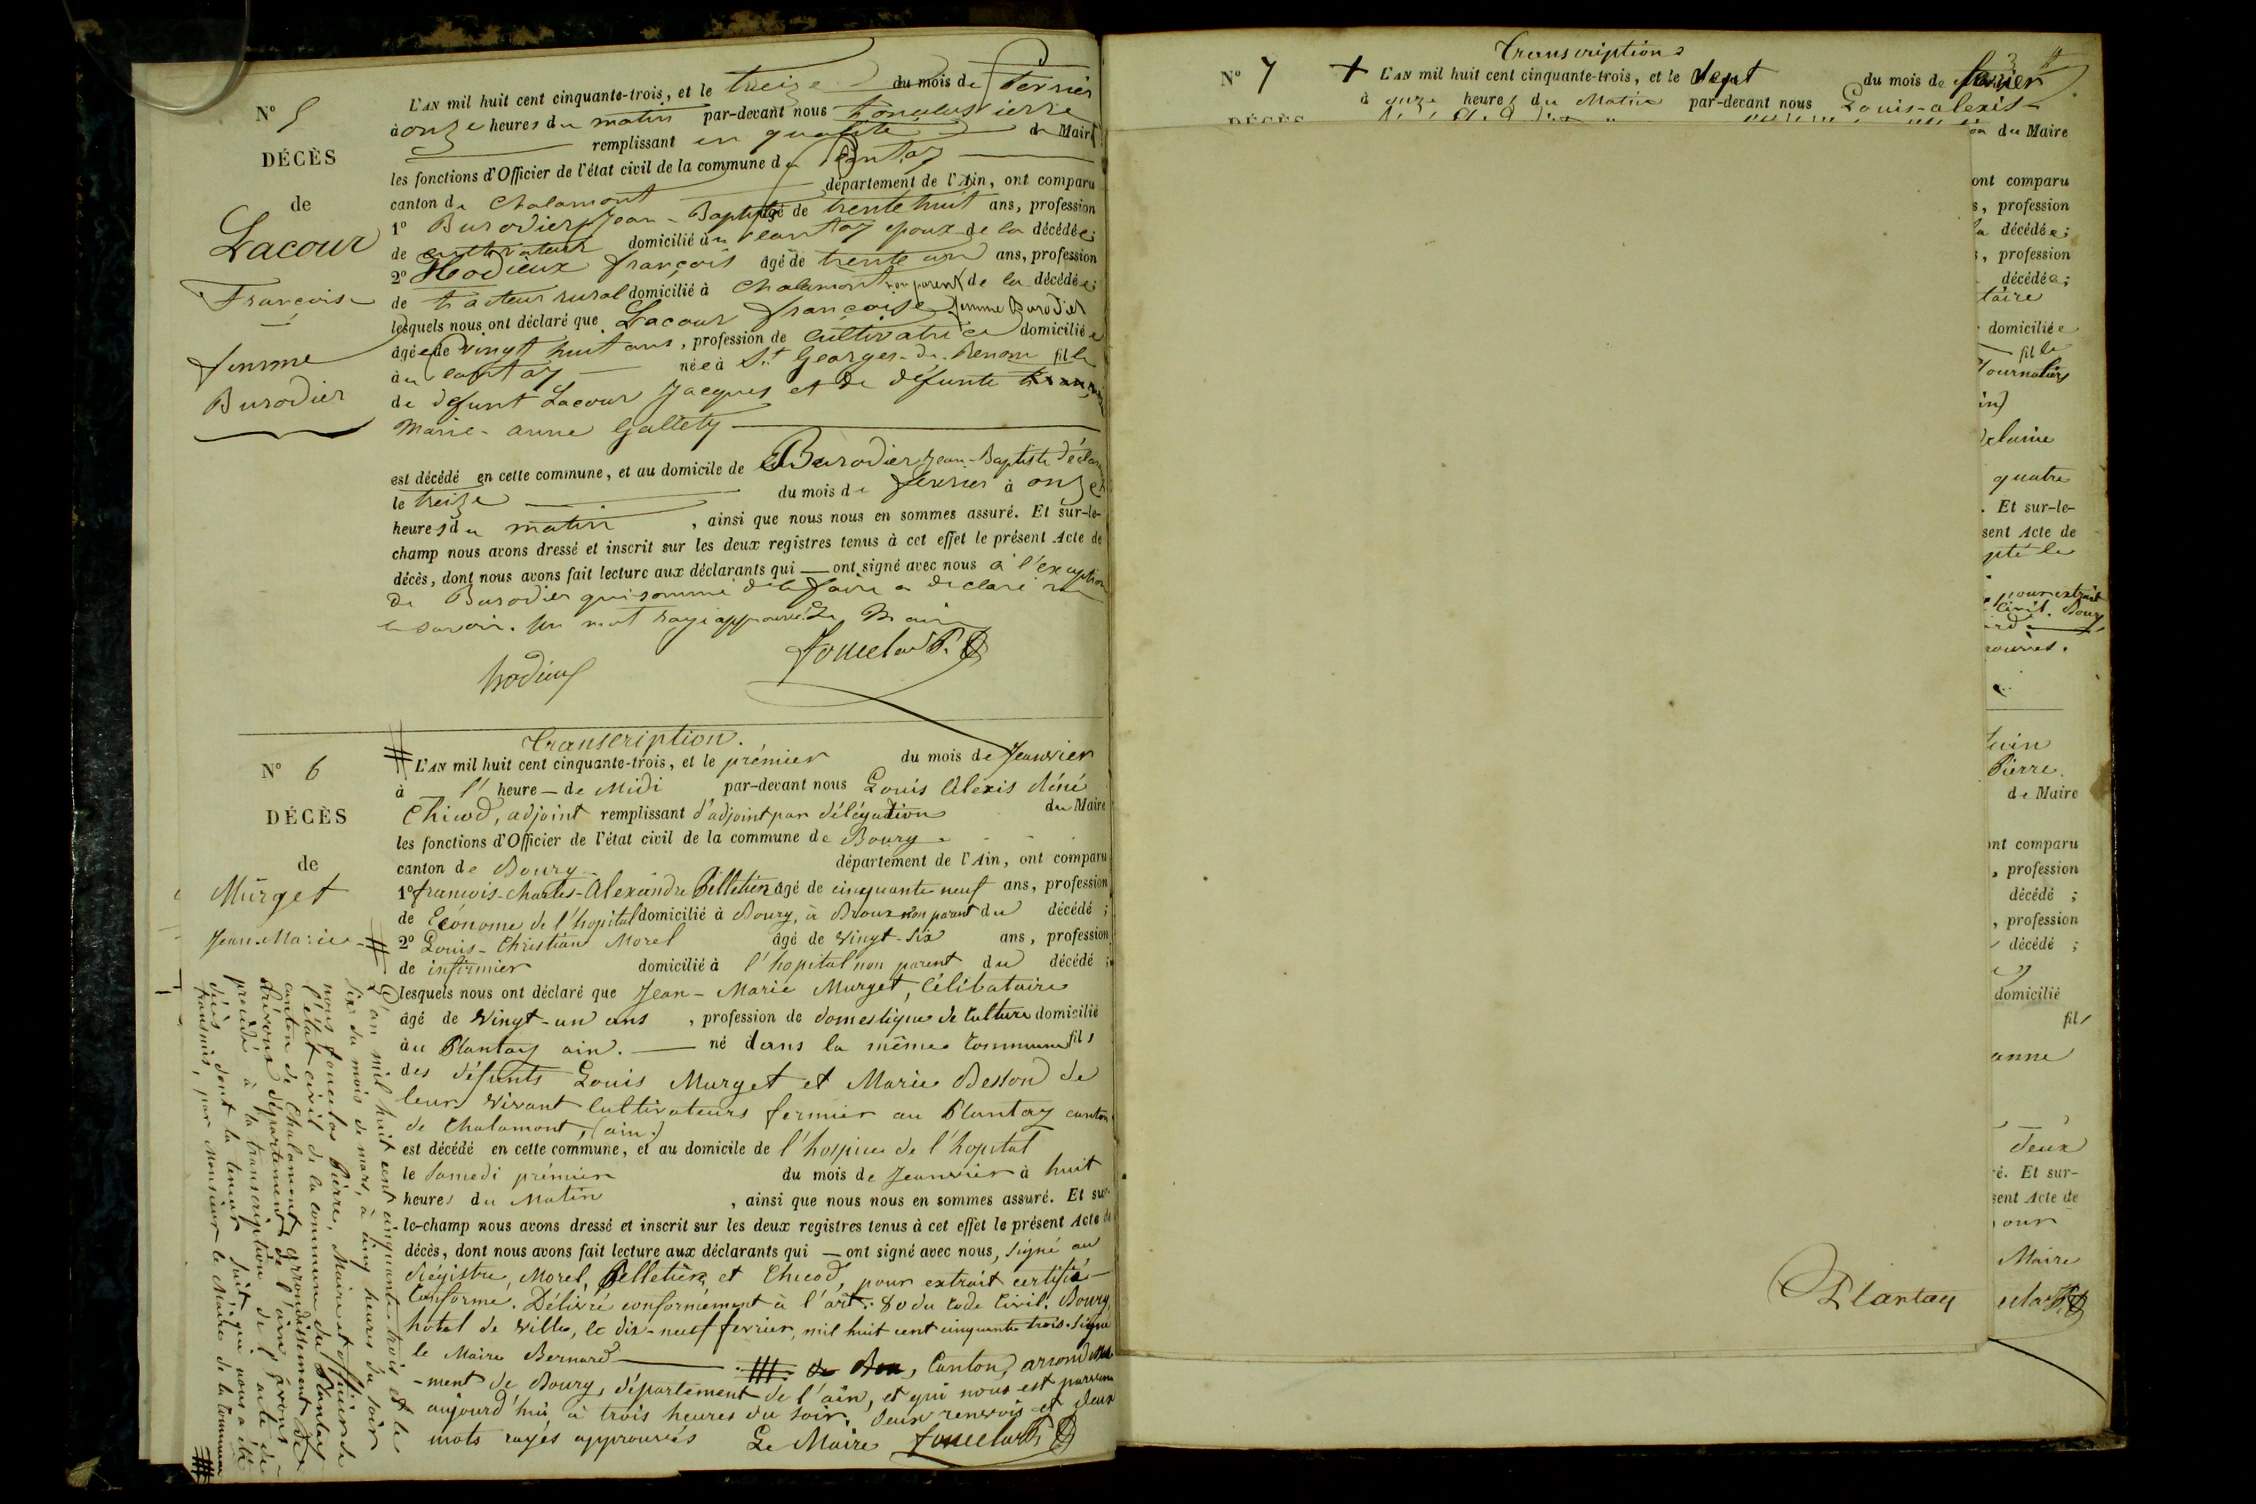 N° 5
DÉCÈS
de
Lacour
Françoise
femme
Burodier
L'AN mil huit cent cinquante-trois, et le treize du mois de fevrier
à onze heures du matin par-devant nous fouclas Pierre
remplissant en qualité de Maire
les fonctions d'Officier de l'état civil de la commune du Plantay
canton de Chalamont département de l'Ain, ont comparu
1° Burodier Jean-Baptiste âgé de trente huit ans, profession
de cultivateur domicilié au Plantay epoux de la décédée;
2° Hodieux françois âgé de trente un ans, profession
de facteur rural domicilié à Chalamont non parent de la décédée;
lesquels nous ont déclaré que Lacour françoise femme Burodier
âgée de vingt huit ans, profession de cultivatrice domiciliée
au Plantay née à St Georges-du-Renom fille
de defunt Lacour Jacques et de défunte
Marie-anne Galtety
est décédé en cette commune, et au domicile de Burodier Jean-Baptiste déclarant
le treize du mois de fevrier à onze
heures du matin, ainsi que nous nous en sommes assuré. Et sur-le-
champ nous avons dressé et inscrit sur les deux registres tenus à cet effet le présent Acte de
décès, dont nous avons fait lecture aux déclarants qui ont signé avec nous à l'exception
de Burodier qui sommé de le faire a declaré ne
le savoir. un mot rayé approuvé. Le Maire
hodieux fouclas P.
Transcription.
N° 6
DÉCÈS
de
Murget
Jean-Marie
L'AN mil huit cent cinquante-trois, et le prémier du mois de Jeanvier
à l' heure de Midi par-devant nous Louis Alexis Réné
Chicod, adjoint remplissant d'adjoint par délégation du Maire
les fonctions d'Officier de l'état civil de la commune de Bourg
canton de Bourg département de l'Ain, ont comparu
1° francois-charles-Alexandre Pelletier âgé de cinquante neuf ans, profession
de Econome de l'hopital domicilié à Bourg, à Brou non parent du décédé;
2° Louis-Christian Morel âgé de vingt-six ans, profession
de infirmier domicilié à l'hopital non parent du décédé;
lesquels nous ont déclaré que Jean-Marie Murget, Célibataire
âgé de vingt-un ans, profession de domestique de culture domicilié
au Plantay ain. né dans la même Commune fils
des défunts Louis Murget et Marie Besson de
leur vivant Cultivateurs fermier au Plantay canton
de Chalamont, (ain.)
est décédé en cette commune, et au domicile de l'hospice de l'hopital
le Samedi prémier du mois de Jeanvier à huit
heures du Matin, ainsi que nous nous en sommes assuré. Et sur
le-champ nous avons dressé et inscrit sur les deux registres tenus à cet effet le présent Acte de
décès, dont nous avons fait lecture aux déclarants qui ont signé avec nous, signé au
Régistre, Morel, Pelletier, et Chicod, pour extrait certifié
Conforme. Délivré conformément à l'art. 80 du Code Civil. Bourg,
hotel de ville, le dix-neuf fevrier, mil huit cent cinquante trois. Signé
le Maire Bernard
Canton, arrondisse
-ment de Bourg, département de l'ain, et qui nous est parvenu
aujourd'hui, à trois heures du soir. deux renvois et deux
mots rayés approuvés Le Maire fouclas P.
L'an mil huit cent cinquante trois et le
six du mois de mars, à cinq heures du soir
nous fouclas Pierre, Maire et officier de
l'état civil de la commune du Plantay
canton de Chalamont, arrondissement de
Trévoux département de l'ain, avons
procédé à la transcription de l'acte de
décès dont la teneur suit qui nous a été
transmis, par Monsieur le Maire de la Commune
Transcriptions
3
N° 7
L'AN mil huit cent cinquante-trois, et le Sept du mois de fevrier
à onze heures du Matin par-devant nous Louis-alexis
DÉCÈS
du Maire
ont comparu
s, profession
la décédée;
s, profession
décédée;
taire
domiciliée
fille
Journaliers
quatre
. Et sur-le-
sent Acte de
pour extrait
Civil. Bourg
Pierre
de Maire
ont comparu
, profession
décédé ;
, profession
décédé ;
domicilié
fils
anne
deux
é. Et sur-
sent Acte de
Maire
Plantay